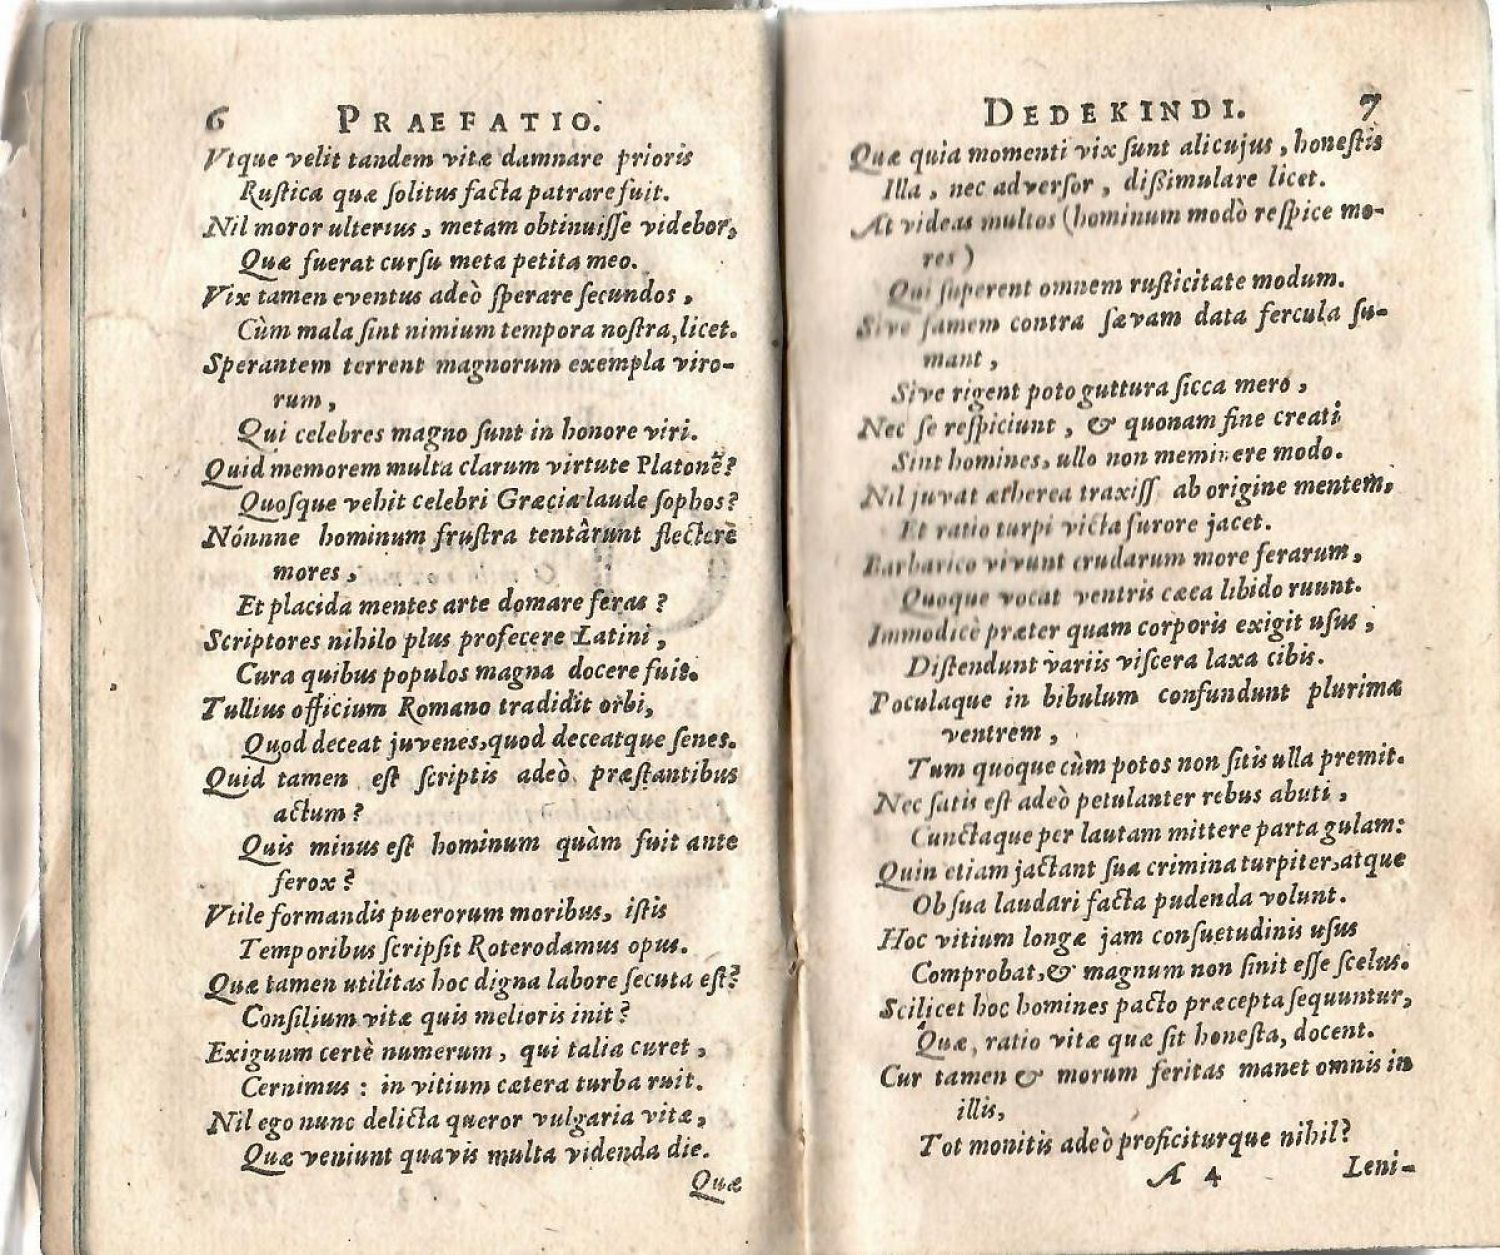 6 PRAEFATIO.
Vtque velit tandem vitæ damnare prioris
Rustica quæ solitus facta patrare fuit.
Nil moror ulterius, metam obtinuisse videbor,
Quæ fuerat cursu meta petita meo.
Vix tamen eventus adeò sperare secundos,
Cùm mala sint nimium tempora nostra, licet.
Sperantem terrent magnorum exempla viro-
rum,
Qui celebres magno sunt in honore viri.
Quid memorem multa clarum virtute Platonẽ?
Quosque vehit celebri Græcia laude sophos?
Nónnne hominum frustra tentârunt flectere
mores,
Et placida mentes arte domare feras?
Scriptores nihilo plus profecere Latini,
Cura quibus populos magna docere fuit.
Tullius officium Romano tradidit orbi,
Quod deceat juvenes, quod deceatque senes.
Quid tamen est scriptis adeò præstantibus
actum?
Quis minus est hominum quàm fuit ante
ferox?
Vtile formandis puerorum moribus, istis
Temporibus scripsit Roterodamus opus.
Quæ tamen utilitas hoc digna labore secuta est?
Consilium vitæ quis melioris init?
Exiguum certè numerum, qui talia curet,
Cernimus: in vitium cætera turba ruit.
Nil ego nunc delicta queror vulgaria vitæ,
Quæ veniunt quavis multa videnda die.
Quæ
DEDEKINDI. 7
Quæ quia momenti vix sunt alicujus, honestis
Illa, nec adversor, dissimulare licet.
At videas multos (hominum modò respice mo-
res)
Qui superent omnem rusticitate modum.
Sive famem contra sævam data fercula su-
mant,
Sive rigent poto guttura sicca mero,
Nec se respiciunt, & quonam fine creati
Sint homines, ullo non meminere modo.
Nil juvat ætherea traxiss ab origine mentem,
Et ratio turpi victa furore jacet.
Barbarico vivunt crudarum more ferarum,
Quoque vocat ventris cæca libido ruunt.
Immodicè præter quam corporis exigit usus,
Distendunt variis viscera laxa cibis.
Poculaque in bibulum confundunt plurima
ventrem,
Tum quoque cùm potos non sitis ulla premit.
Nec satis est adeò petulanter rebus abuti,
Cunctaque per lautam mittere parta gulam:
Quin etiam jactant sua crimina turpiter, atque
Ob sua laudari facta pudenda volunt.
Hoc vitium longæ jam consuetudinis usus
Comprobat, & magnum non sinit esse scelus.
Scilicet hoc homines pacto præcepta sequuntur,
Quæ, ratio vitæ quæ sit honesta, docent.
Cur tamen & morum feritas manet omnis in
illis,
Tot monitis adeò proficiturque nihil?
A 4 Leni-